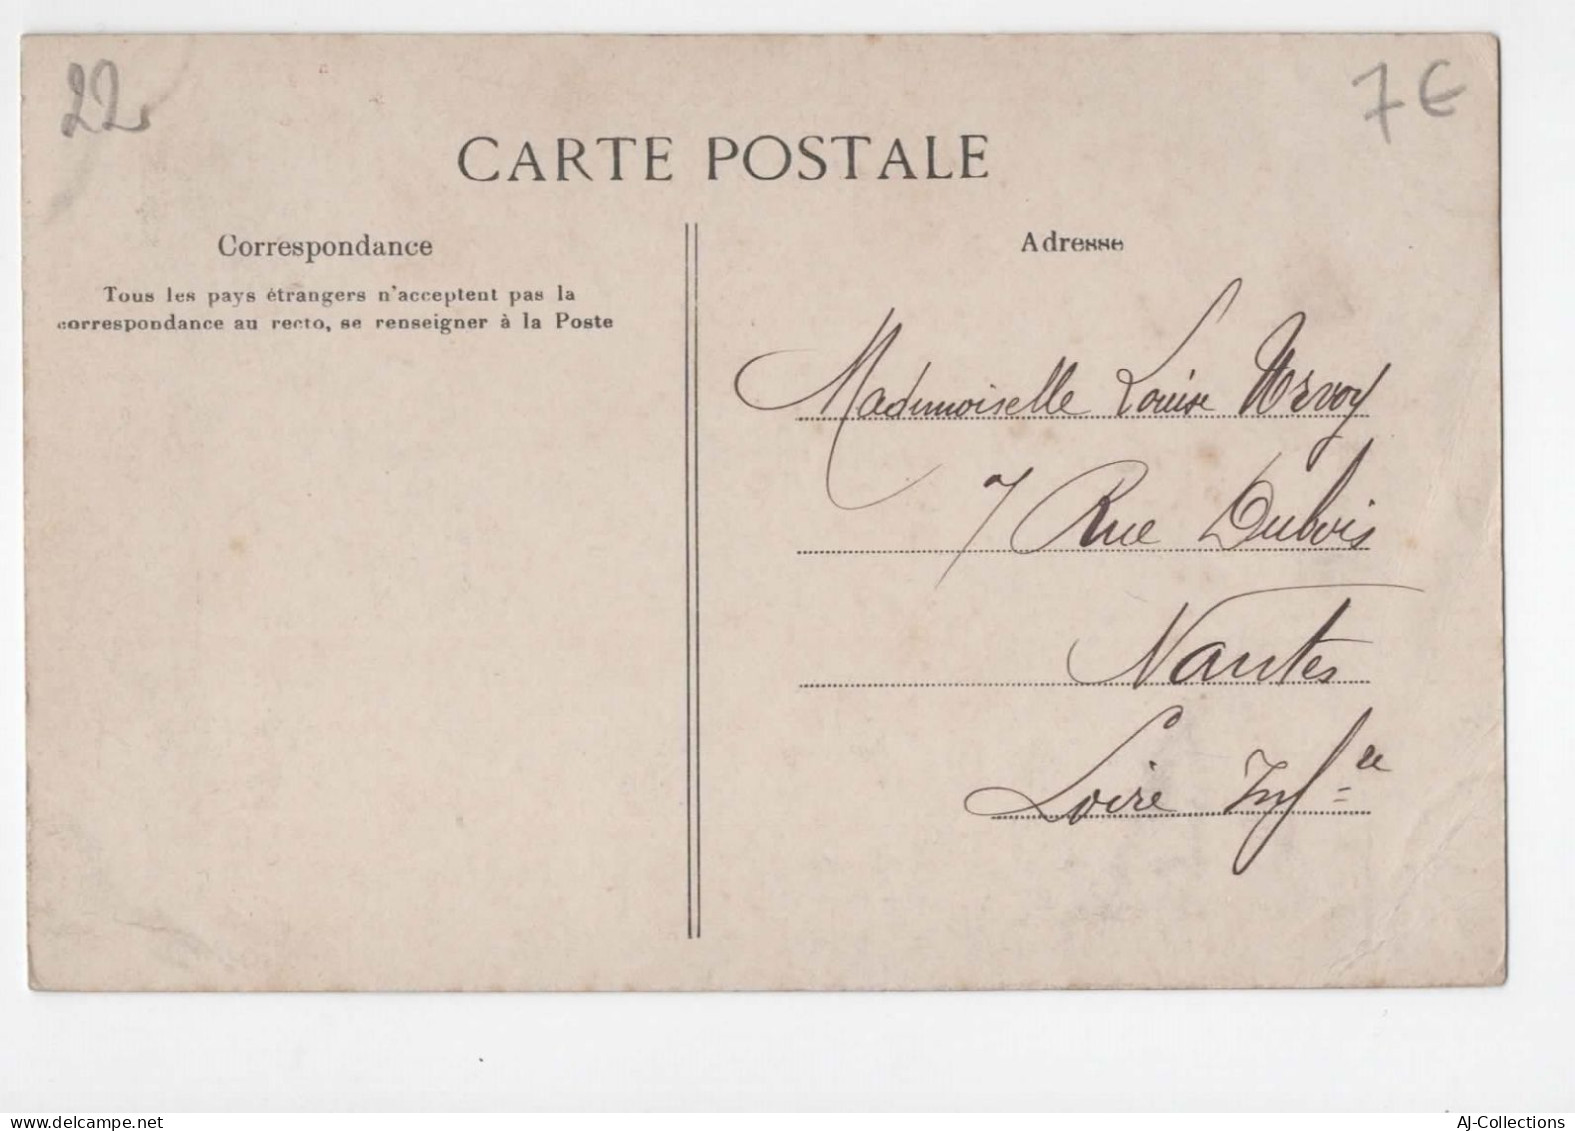 22
7 €
CARTE POSTALE
Correspondance
Tous les pays étrangers n'acceptent pas la
correspondance au recto, se renseigner à la Poste
Adresse
Mademoiselle Louise
7 Rue Dubois
Nantes
Loire Inf re
www.delcampe.net
AJ-Collections